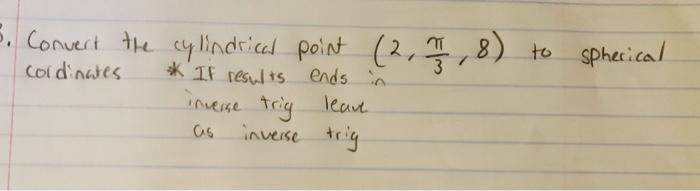 3. Convert the cylindrical point (2, π/3, 8) to spherical
cordinates * If results ends in
inverse trig leave
as inverse trig